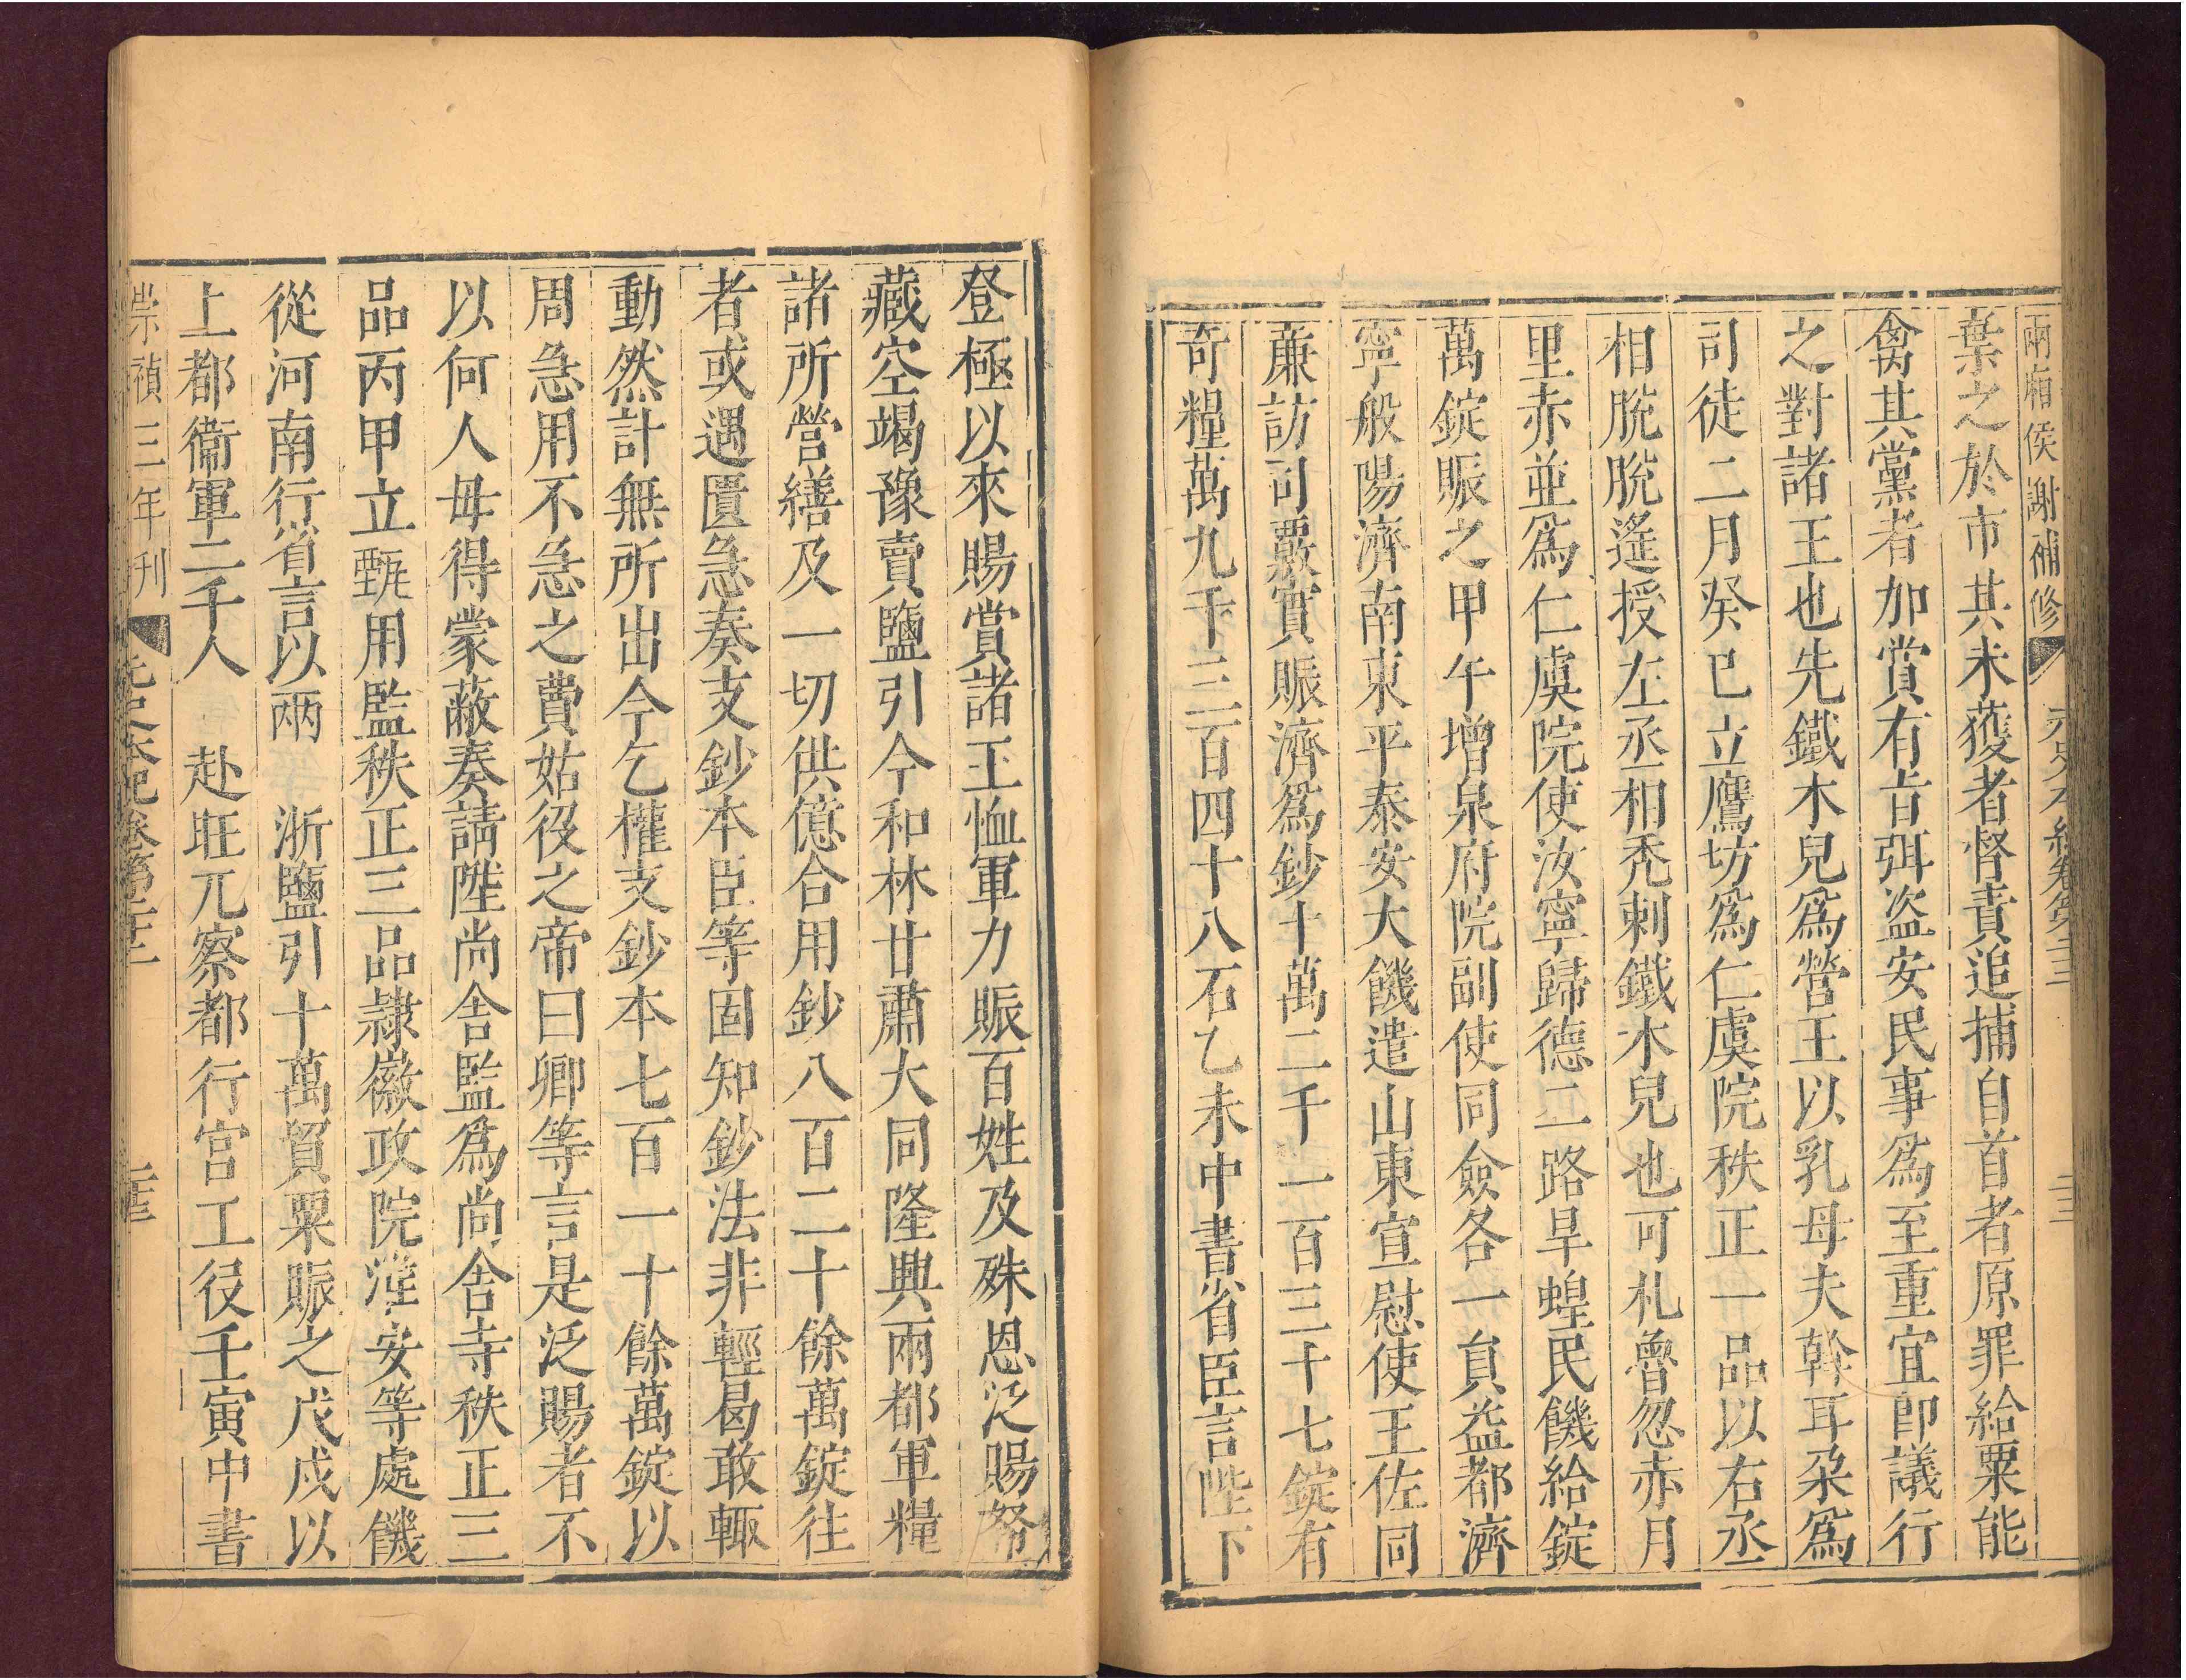 兩廂侯謝補修 元史本紀卷第二十二
棄之於市其未獲者督責追捕自首者原罪給粟能
禽其黨者加賞有旨弭盗安民事為至重宜卽議行
之對諸王也先鐵木兒爲營王以乳母夫斡耳朶爲
司徒二月癸巳立鷹坊爲仁虞院秩正一品以右丞
相脫脫遙授左丞相禿剌鐵木兒也可札魯忽赤月
里赤並爲仁虞院使汝寧歸德二路旱蝗民饑給錠
萬錠賑之甲午增泉府院副使同僉各一員益都濟
寧般陽濟南東平泰安大饑遣山東宣慰使王佐同
亷訪司覈實賑濟爲鈔十萬二千一百三十七錠有
奇糧萬九千三百四十八石乙未中書省臣言陛下
登極以來賜賞諸王恤軍力賑百姓及殊恩泛賜帑
藏空竭豫賣鹽引今和林甘肅大同隆興兩都軍糧
諸所營繕及一切供億合用鈔八百二十餘萬錠往
者或遇匱急奏支鈔本臣等固知鈔法非輕曷敢輒
動然計無所出今乞權支鈔本七百一十餘萬錠以
周急用不急之費姑後之帝曰卿等言是泛賜者不
以何人毋得蒙蔽奏請陞尚舍監爲尚舍寺秩正三
品丙甲立甄用監秩正三品隷徽政院淮安等處饑
從河南行省言以兩 浙鹽引十萬貿粟賑之戊戌以
上都衞軍三千人 赴旺兀察都行宮工役壬寅中書
崇禎三年刊 元史本紀卷第二十二